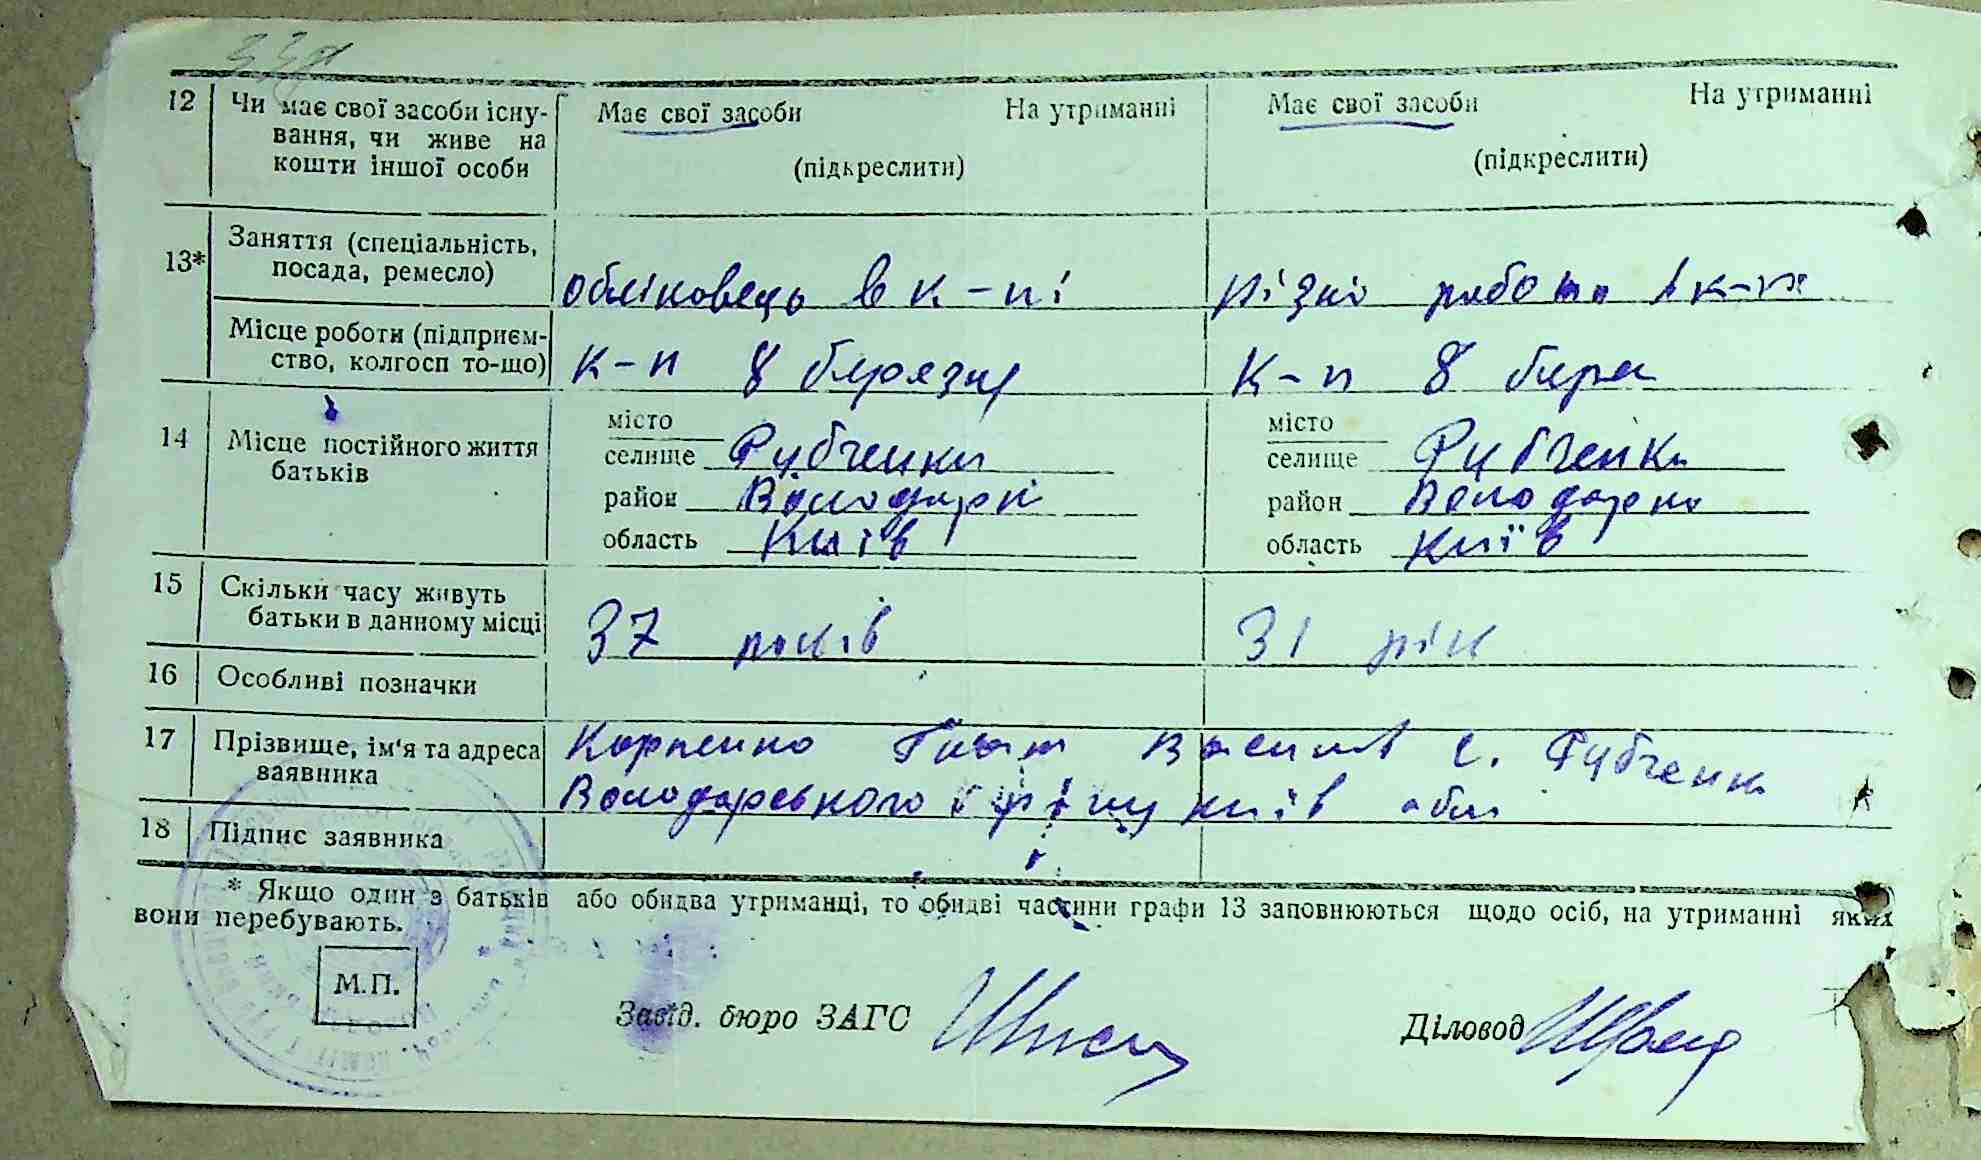 12 Чи має свої засоби існу- Має свої засоби На утриманні Має свої засоби На утриманні
вання, чи живе на
кошти іншої особи (підкреслити) (підкреслити)
13* Заняття (спеціальність,
посада, ремесло) обліковець в к-пі різні роботи в к-пі
Місце роботи (підприєм-
ство, колгосп то-що) к-п 8 березня к-п 8 бере
14 Місце постійного життя
батьків
місто місто
селище Рубченки селище Рубченки
район Володарк район Володарк
область Київ область Київ
15 Скільки часу живуть
батьки в данному місці 37 років 31 рік
16 Особливі позначки
17 Прізвище, ім'я та адреса
заявника
Карпенко Гнат Василів с. Рубченки
Володарського Київ обл
18 Підпис заявника
* Якщо один з батьків або обидва утриманці, то обидві частини графи 13 заповнюються щодо осіб, на утриманні яких
вони перебувають.
М.П.
Завід. бюро ЗАГС Діловод